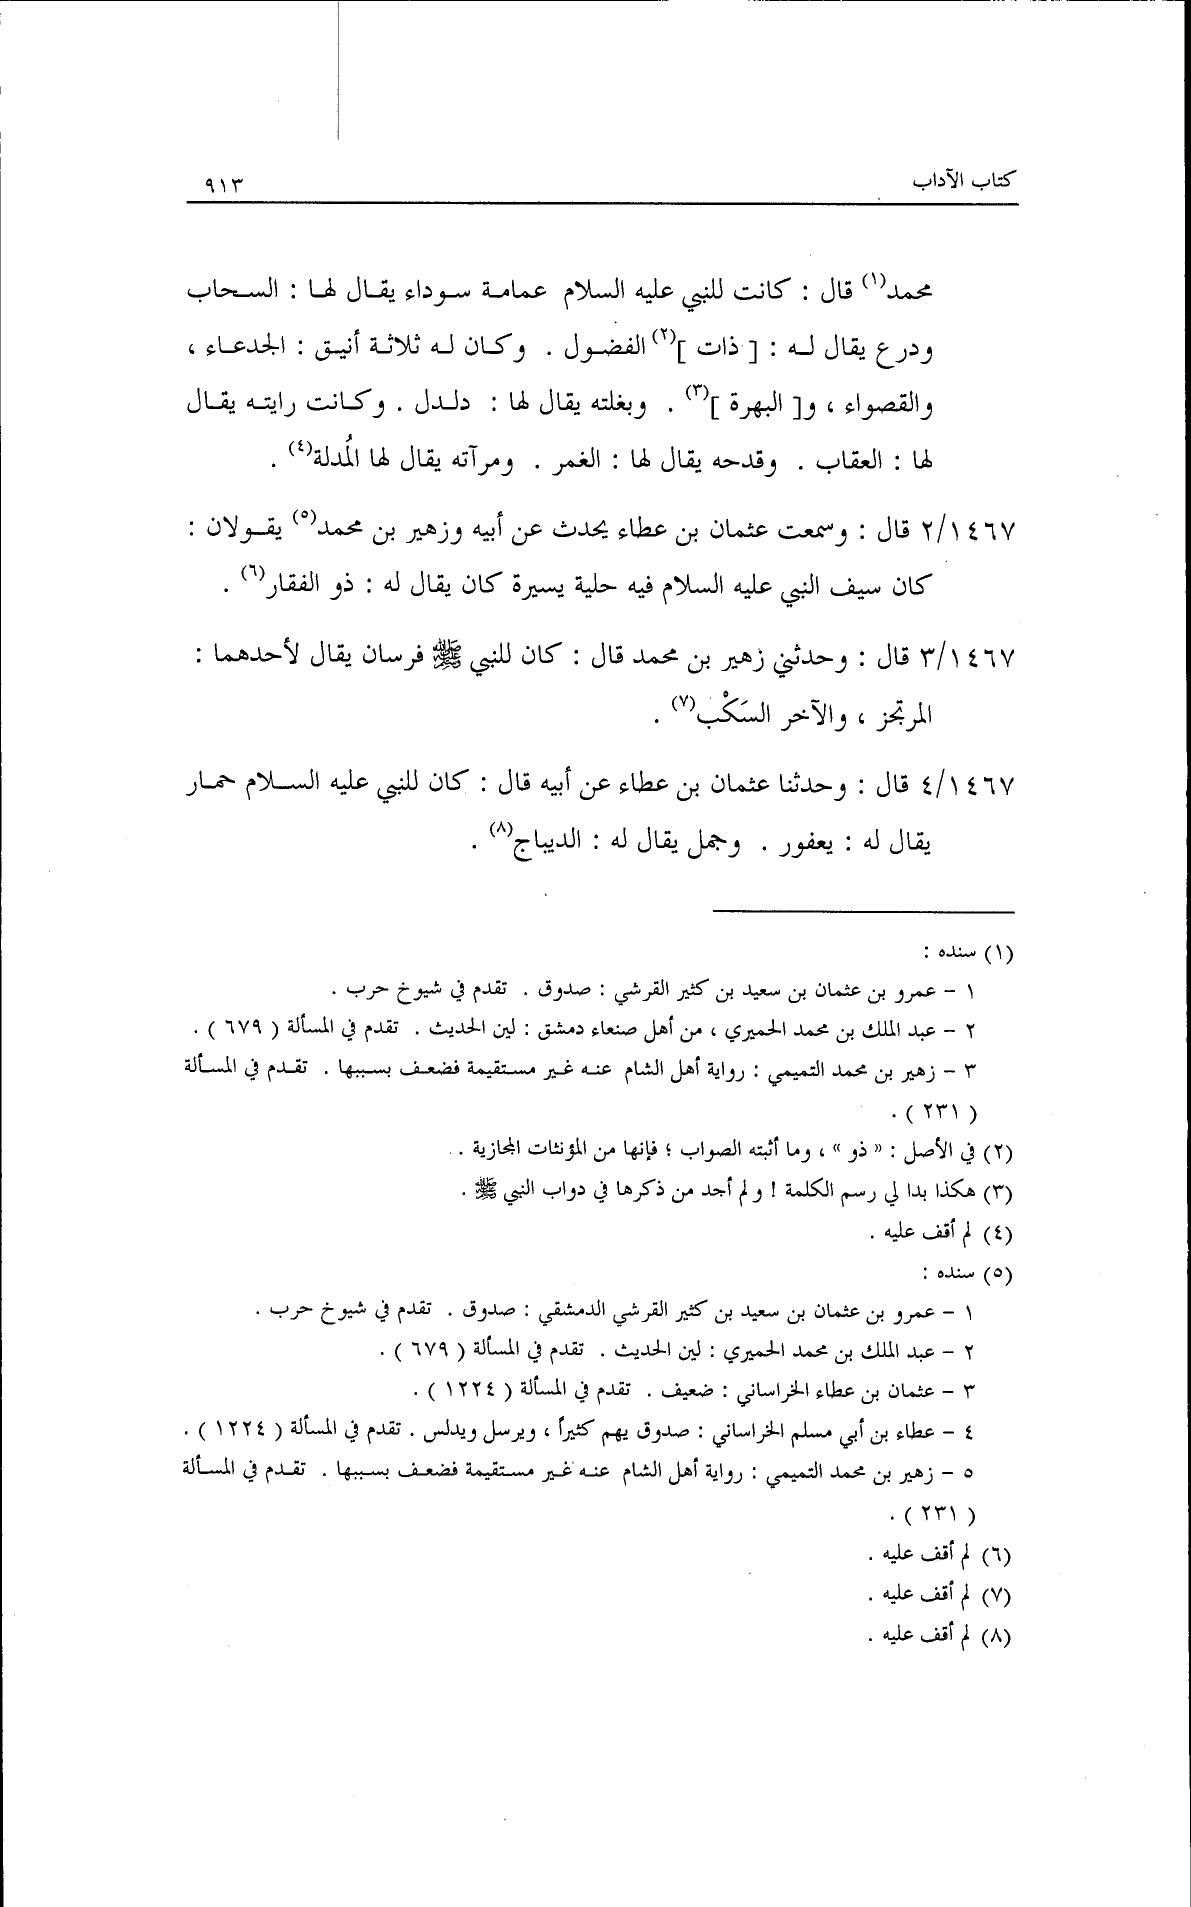 كتاب الآداب ٩١٣
محمد(١) قال : كانت للنبي عليه السلام عمامة سوداء يقال لها : السحاب
ودرع يقال له : [ ذات ](٢) الفضول . وكان له ثلاثة أنيق : الجدعاء ،
والقصواء ، و[ البهرة ](٣) . وبغلته يقال لها : دلدل . وكانت رايته يقال
لها : العقاب . وقدحه يقال لها : الغمر . ومرآته يقال لها المُدلة(٤) .
٢/١٤٦٧ قال : وسمعت عثمان بن عطاء يحدث عن أبيه وزهير بن محمد(٥) يقولان :
كان سيف النبي عليه السلام فيه حلية يسيرة كان يقال له : ذو الفقار(٦) .
٣/١٤٦٧ قال : وحدثني زهير بن محمد قال : كان للنبي ﷺ فرسان يقال لأحدهما :
المرتجز ، والآخر السَكْب(٧) .
٤/١٤٦٧ قال : وحدثنا عثمان بن عطاء عن أبيه قال : كان للنبي عليه السلام حمار
يقال له : يعفور . وجمل يقال له : الديباج(٨) .
(١) سنده :
١ – عمرو بن عثمان بن سعيد بن كثير القرشي : صدوق . تقدم في شيوخ حرب .
٢ – عبد الملك بن محمد الحميري ، من أهل صنعاء دمشق : لين الحديث . تقدم في المسألة ( ٦٧٩ ) .
٣ – زهير بن محمد التميمي : رواية أهل الشام عنه غير مستقيمة فضعف بسببها . تقدم في المسألة
( ٢٣١ ) .
(٢) في الأصل : « ذو » ، وما أثبته الصواب ؛ فإنها من المؤنثات المجازية .
(٣) هكذا بدا لي رسم الكلمة ! ولم أجد من ذكرها في دواب النبي ﷺ .
(٤) لم أقف عليه .
(٥) سنده :
١ – عمرو بن عثمان بن سعيد بن كثير القرشي الدمشقي : صدوق . تقدم في شيوخ حرب .
٢ – عبد الملك بن محمد الحميري : لين الحديث . تقدم في المسألة ( ٦٧٩ ) .
٣ – عثمان بن عطاء الخراساني : ضعيف . تقدم في المسألة ( ١٢٢٤ ) .
٤ – عطاء بن أبي مسلم الخراساني : صدوق يهم كثيراً ، ويرسل ويدلس . تقدم في المسألة ( ١٢٢٤ ) .
٥ – زهير بن محمد التميمي : رواية أهل الشام عنه غير مستقيمة فضعف بسببها . تقدم في المسألة
( ٢٣١ ) .
(٦) لم أقف عليه .
(٧) لم أقف عليه .
(٨) لم أقف عليه .